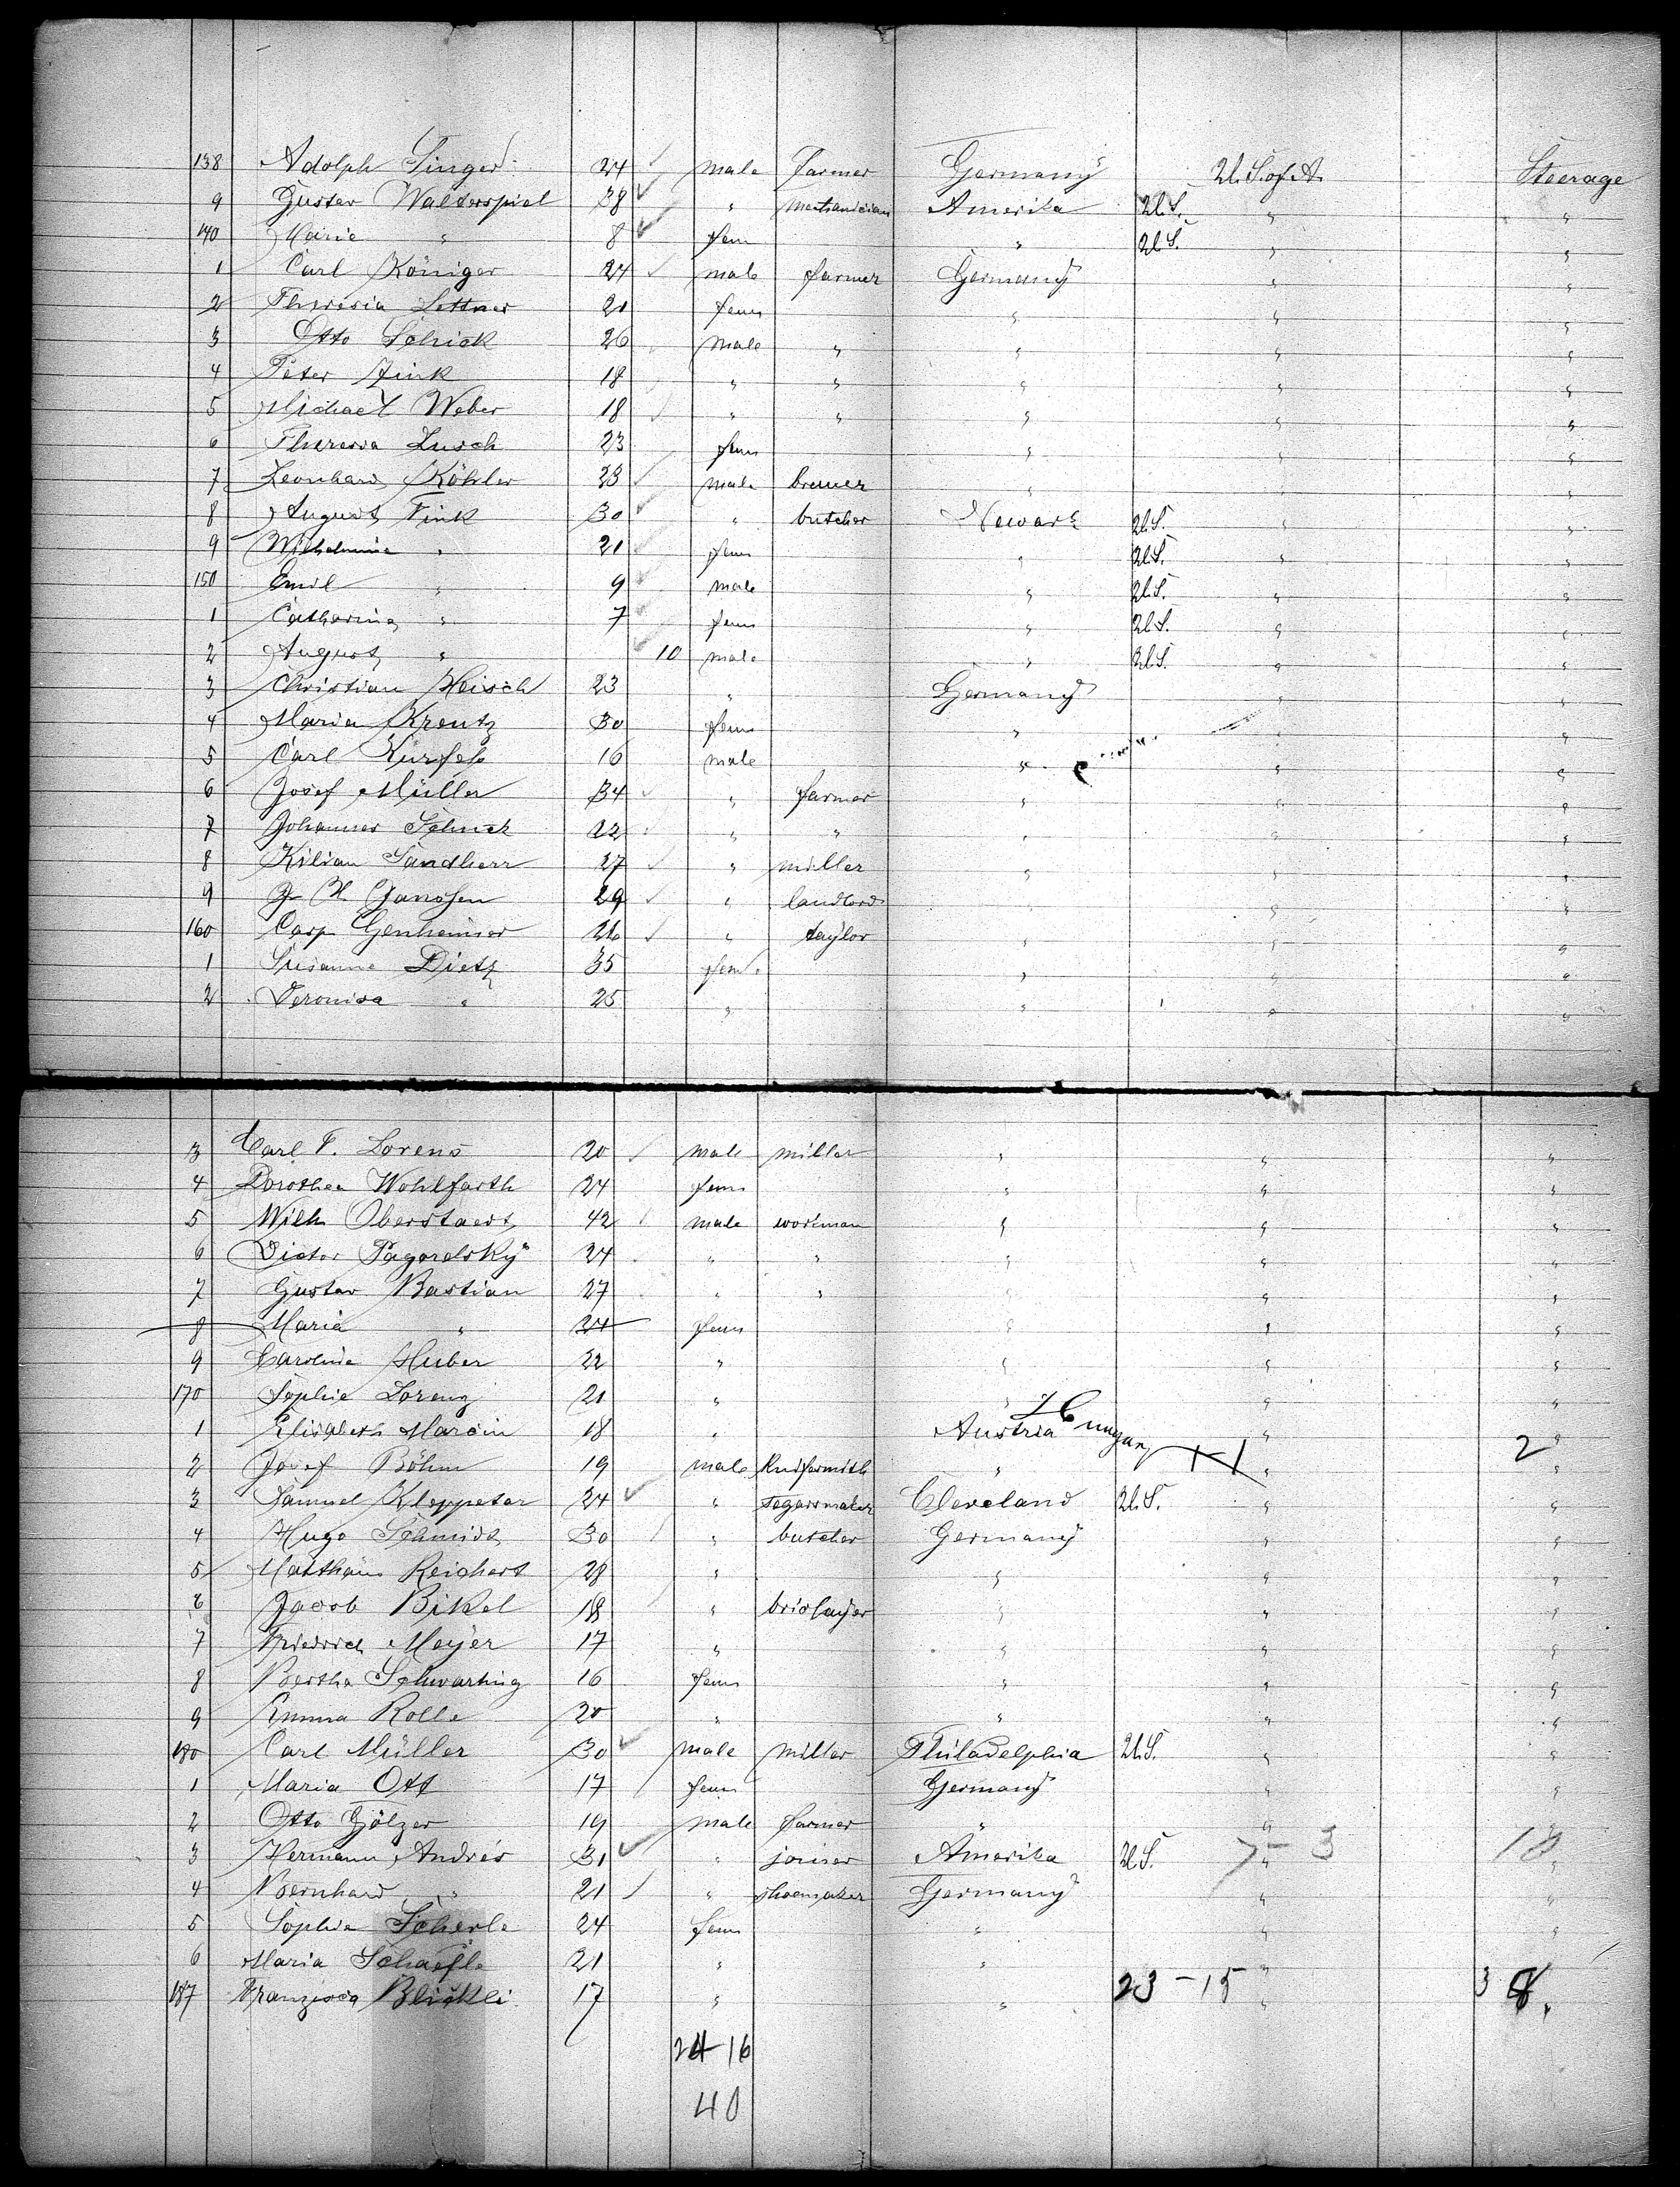 138 Adolph Singer 24 male farmer Germany U.S. of A. Steerage
9 Gustav Walterspiel 38 " mechanician Amerika U.S. " "
140 Marie " 8 fem " U.S. " "
1 Carl Königer 24 male farmer Germany " "
2 Theresia Lettner 21 fem " " "
3 Otto Schick 26 male " " " "
4 Peter Zink 18 " " " " "
5 Michael Weber 18 " " " " "
6 Theresia Lusch 23 fem " " "
7 Leonhard Köhler 23 male brewer " " "
8 August Fink 30 " butcher Newark U.S. " "
9 Wilhelmine " 21 fem " U.S. " "
150 Emil " 9 male " U.S. " "
1 Catharina " 7 fem " U.S. " "
2 August " 10 male " U.S. " "
3 Christian Heisch 23 " Germany " "
4 Maria Kreutz 30 fem " " "
5 Carl 16 male " " "
6 Josef Müller 34 " farmer " " "
7 Johannes 22 " " " " "
8 Kilian Sandherr 27 " miller " " "
9 H. Janssen 29 " landlord " " "
160 Casp Genheimer 26 " taylor " " "
1 Susanne Dietz 35 fem. " " "
2 Veronica " 25 " " " "
3 Carl F. Lorens 20 male miller " " "
4 Dorothea Wohlfarth 24 fem " " "
5 Wilh 42 male workman " " "
6 Victor Pagorelsky 24 " " " " "
7 Gustav Bastian 27 " " " " "
8 Maria " 24 fem " " "
9 Caroline Huber 22 " " " "
170 Sophie Lorenz 21 " " " "
1 Elisabeth Marcin 18 " Austria Hungary " " 2
2 Josef Böhm 19 male knifesmith " " "
3 Samuel Kloppeter 24 " segarsmaker Cleveland U.S. " "
4 Hugo Schmidt 30 " butcher Germany " "
5 Matthäus Reichert 28 " " " "
6 Jacob Bikel 18 " briclayer " " "
7 Friedrich Meyer 17 " " " "
8 Bertha Schwarting 16 fem " " "
9 Emma Rolle 20 " " " "
180 Carl Müller 30 male miller Philadelphia U.S. " "
1 Maria Ott 17 fem Germany " "
2 Otto 19 male farmer " " "
3 Hermann Andrés 31 " joiner Amerika U.S. 7-3 " 10 "
4 Bernhard " 21 " shoemaker Germany " "
5 Sophie Scherle 24 fem " " "
6 Maria Schaefle 21 " " " "
187 Franzisca Blickli 17 " " 23-15 " 3 8.
24-16
40